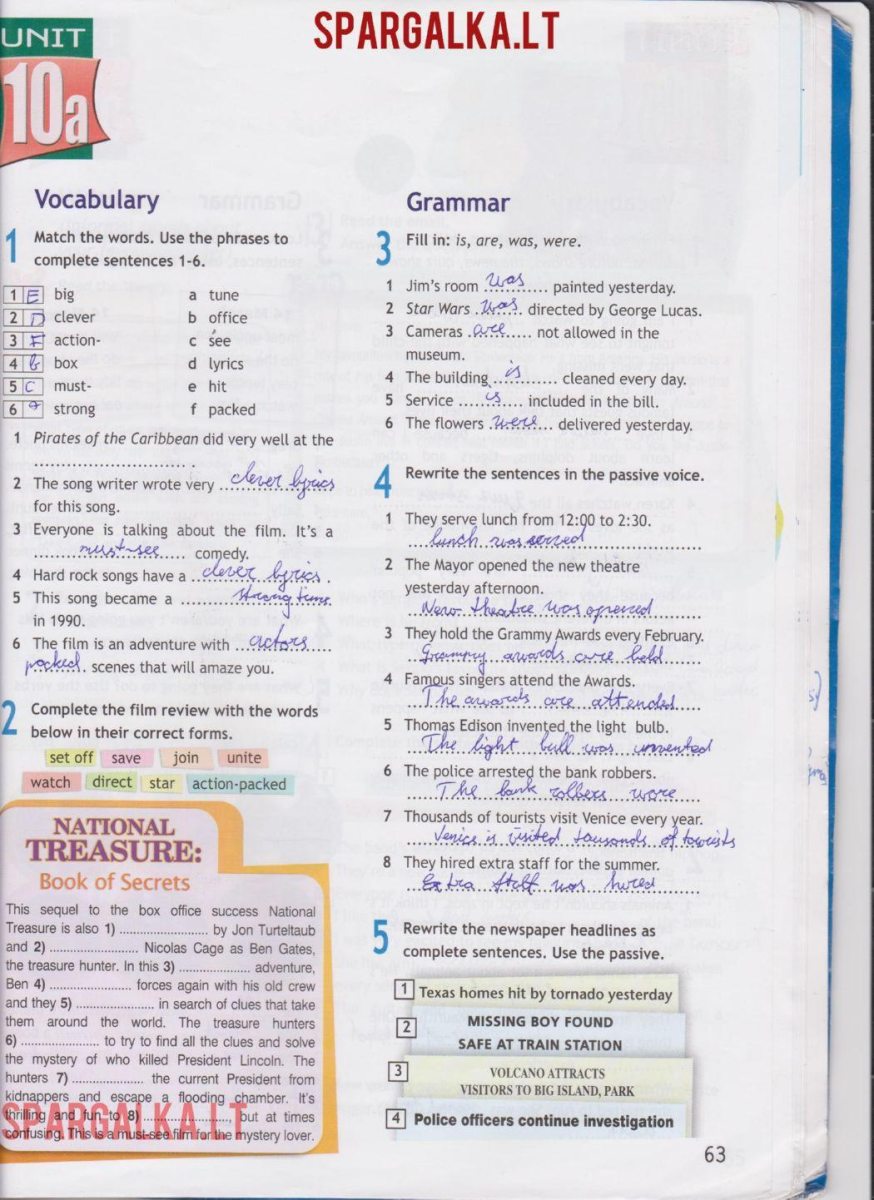 SPARGALKA.LT
UNIT
10a
Vocabulary
1 Match the words. Use the phrases to
complete sentences 1-6.
1 E big a tune
2 D clever b office
3 F action- c see
4 b box d lyrics
5 C must- e hit
6 a strong f packed
1 Pirates of the Caribbean did very well at the
............................ .
2 The song writer wrote very clever lyrics
for this song.
3 Everyone is talking about the film. It's a
must-see comedy.
4 Hard rock songs have a clever lyrics .
5 This song became a strong tune
in 1990.
6 The film is an adventure with actors
packed scenes that will amaze you.
2 Complete the film review with the words
below in their correct forms.
set off save join unite
watch direct star action-packed
NATIONAL
TREASURE:
Book of Secrets
This sequel to the box office success National
Treasure is also 1) ........................ by Jon Turteltaub
and 2) ........................ Nicolas Cage as Ben Gates,
the treasure hunter. In this 3) ................... adventure,
Ben 4) ...................... forces again with his old crew
and they 5) ..................... in search of clues that take
them around the world. The treasure hunters
6) ..................... to try to find all the clues and solve
the mystery of who killed President Lincoln. The
hunters 7) ................... the current President from
kidnappers and escape a flooding chamber. It's
thrilling and fun to 8) ......................, but at times
confusing. This is a must-see film for the mystery lover.
SPARGALKA.LT
Grammar
3 Fill in: is, are, was, were.
1 Jim's room was painted yesterday.
2 Star Wars was directed by George Lucas.
3 Cameras are not allowed in the
museum.
4 The building is cleaned every day.
5 Service is included in the bill.
6 The flowers were delivered yesterday.
4 Rewrite the sentences in the passive voice.
1 They serve lunch from 12:00 to 2:30.
lunch was served
2 The Mayor opened the new theatre
yesterday afternoon.
New theatre was opened
3 They hold the Grammy Awards every February.
Grammy awards are held
4 Famous singers attend the Awards.
The awards are attended
5 Thomas Edison invented the light bulb.
The light bull was
6 The police arrested the bank robbers.
The bank robbers were
7 Thousands of tourists visit Venice every year.
Venice is visited tousands of tourists
8 They hired extra staff for the summer.
Extra staff was hired
5 Rewrite the newspaper headlines as
complete sentences. Use the passive.
1 Texas homes hit by tornado yesterday
2 MISSING BOY FOUND
SAFE AT TRAIN STATION
3 VOLCANO ATTRACTS
VISITORS TO BIG ISLAND, PARK
4 Police officers continue investigation
63